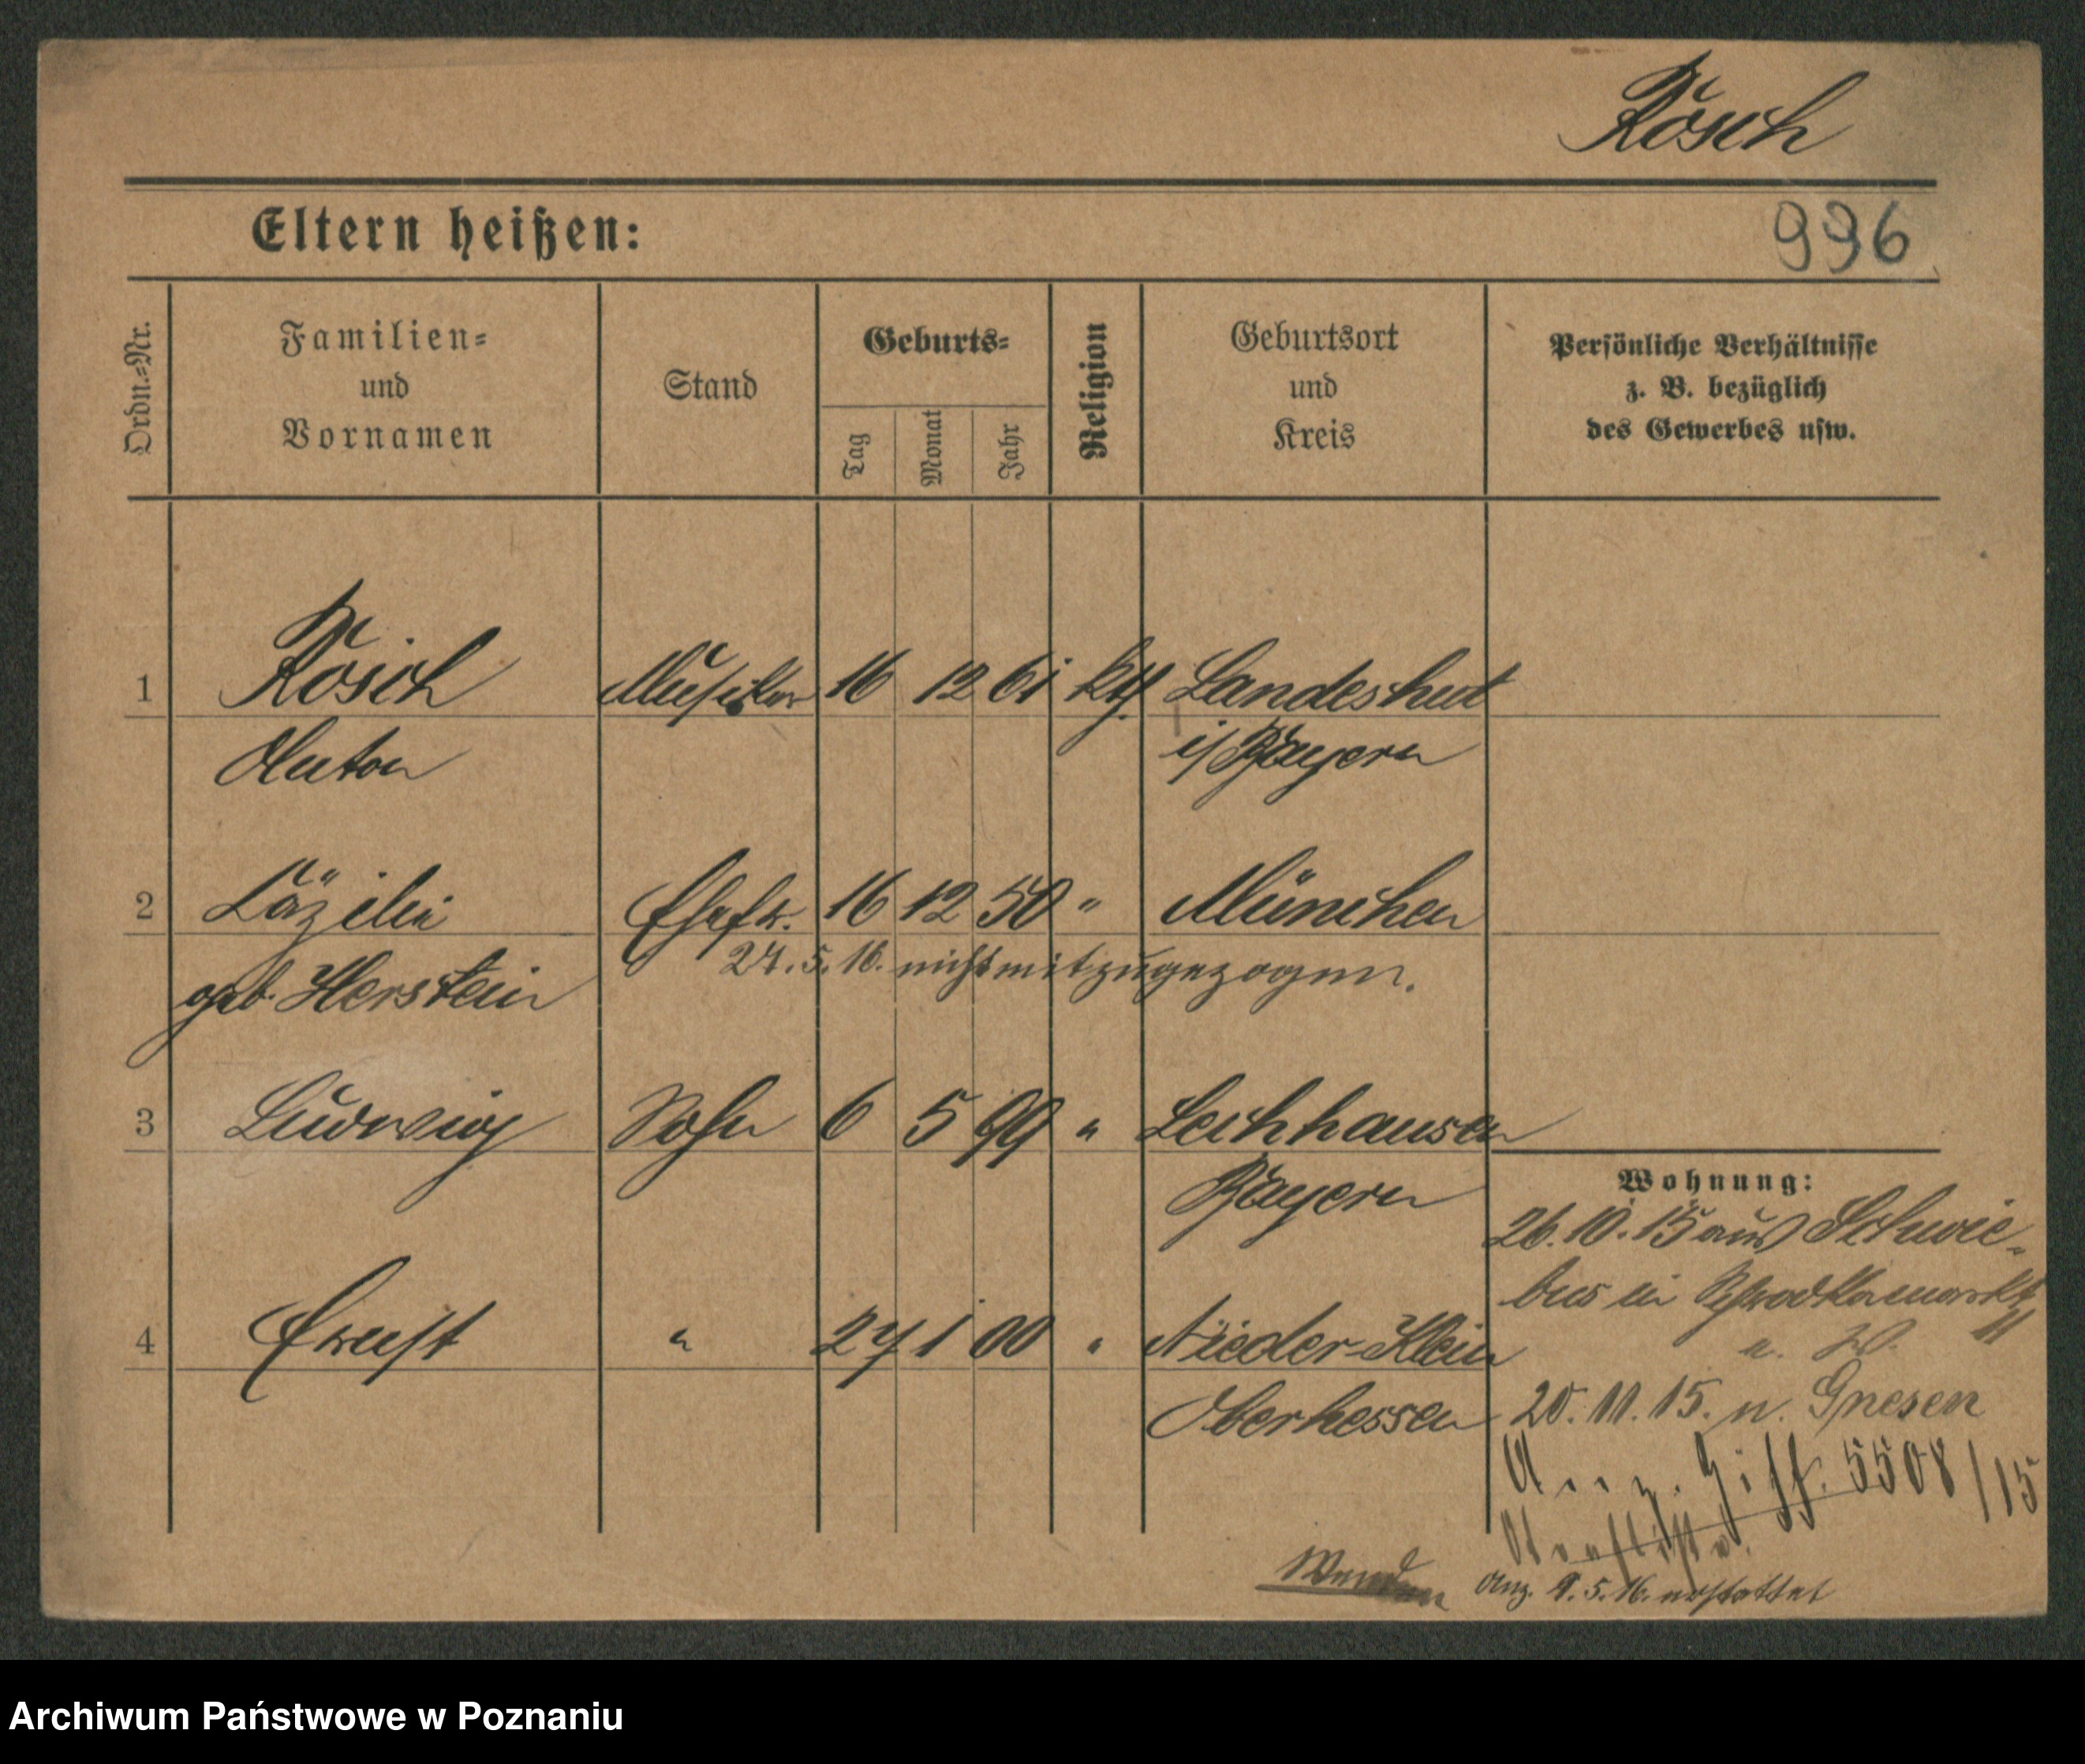 Rösch
Eltern heißen:
996
Ordn.=Nr.
Familien=
und
Vornamen
Stand
Geburts=
Tag
Monat
Jahr
Religion
Geburtsort
und
Kreis
Persönliche Verhältnisse
z. B. bezüglich
des Gewerbes usw.
1 Rösch Musiker 16 12 61 kth. Landeshut
Anton i/Bayern
2 Cäzilie Ehefr. 16 12 50 " München
24. 5. 16. nicht mit zugezogen.
geb. Herstein
3 Ludwig Sohn 6 5 99 " Lechhausen
Bayern
Wohnung:
26. 10. 15 aus Schwie-
bus in Schrodkamarkt
11
4 Ernst " 27 1 00 " Nieder-Klein
Oberhessen
20. 11. 15. n. Gnesen
Anz. 5508/15
Wenden
Anz. 9. 5. 16. erstattet
Archiwum Państwowe w Poznaniu